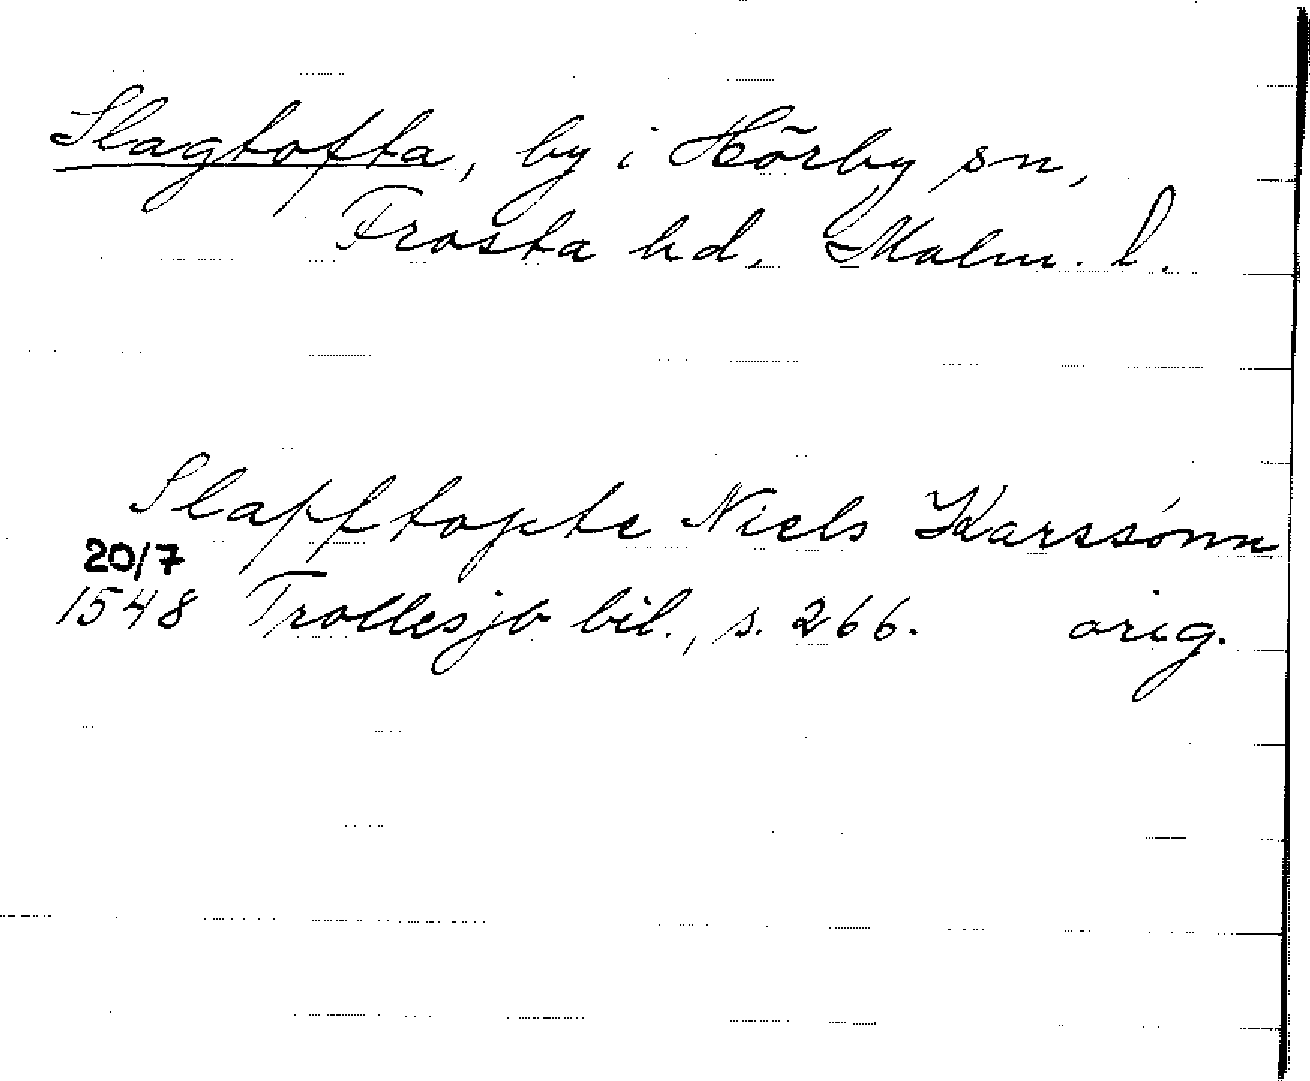 Slagtofta, by i Hörby sn,
Frosta hd, Malm. l.
Slapftopte Niels Karssónn
20/7
1548 Trollesjb bil., s. 266. orig.